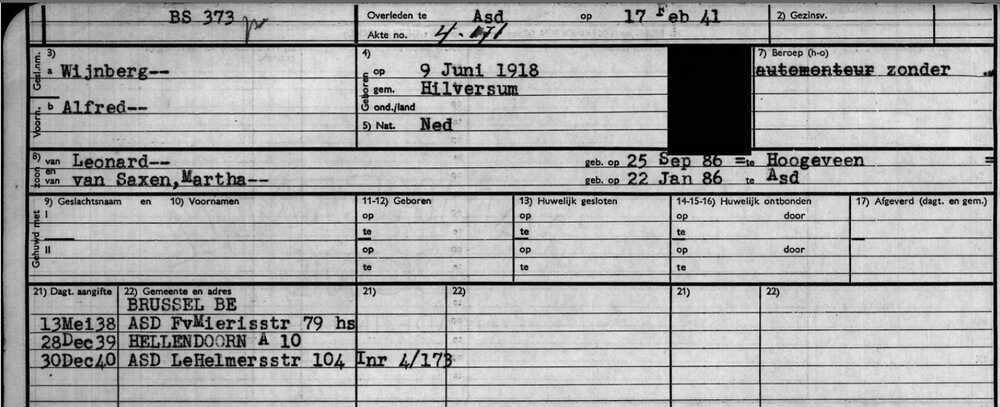 BS 373
Overleden te Asd op 17 Feb 41
2) Gezinsv.
Akte no.
3)
Gesl.nm. a Wijnberg--
Voorn. b Alfred--
4)
Geboren
op 9 Juni 1918
gem. Hilversum
ond./land
5) Nat. Ned
7) Beroep (h-o)
automonteur zonder
8) zoon van Leonard-- geb. op 25 Sep 86 = te Hoogeveen =
en van van Saxen,Martha-- geb. op 22 Jan 86 te Asd
Gehuwd met
9) Geslachtsnaam en 10) Voornamen 11-12) Geboren 13) Huwelijk gesloten 14-15-16) Huwelijk ontbonden 17) Afgeverd (dagt. en gem.)
I op op op door
te te te
II op op op door
te te te
21) Dagt. aangifte 22) Gemeente en adres 21) 22) 21) 22)
BRUSSEL BE
13Mei38 ASD FvMierisstr 79 hs
28Dec39 HELLENDOORN A 10
30Dec40 ASD LeHelmersstr 104 Inr 4/173